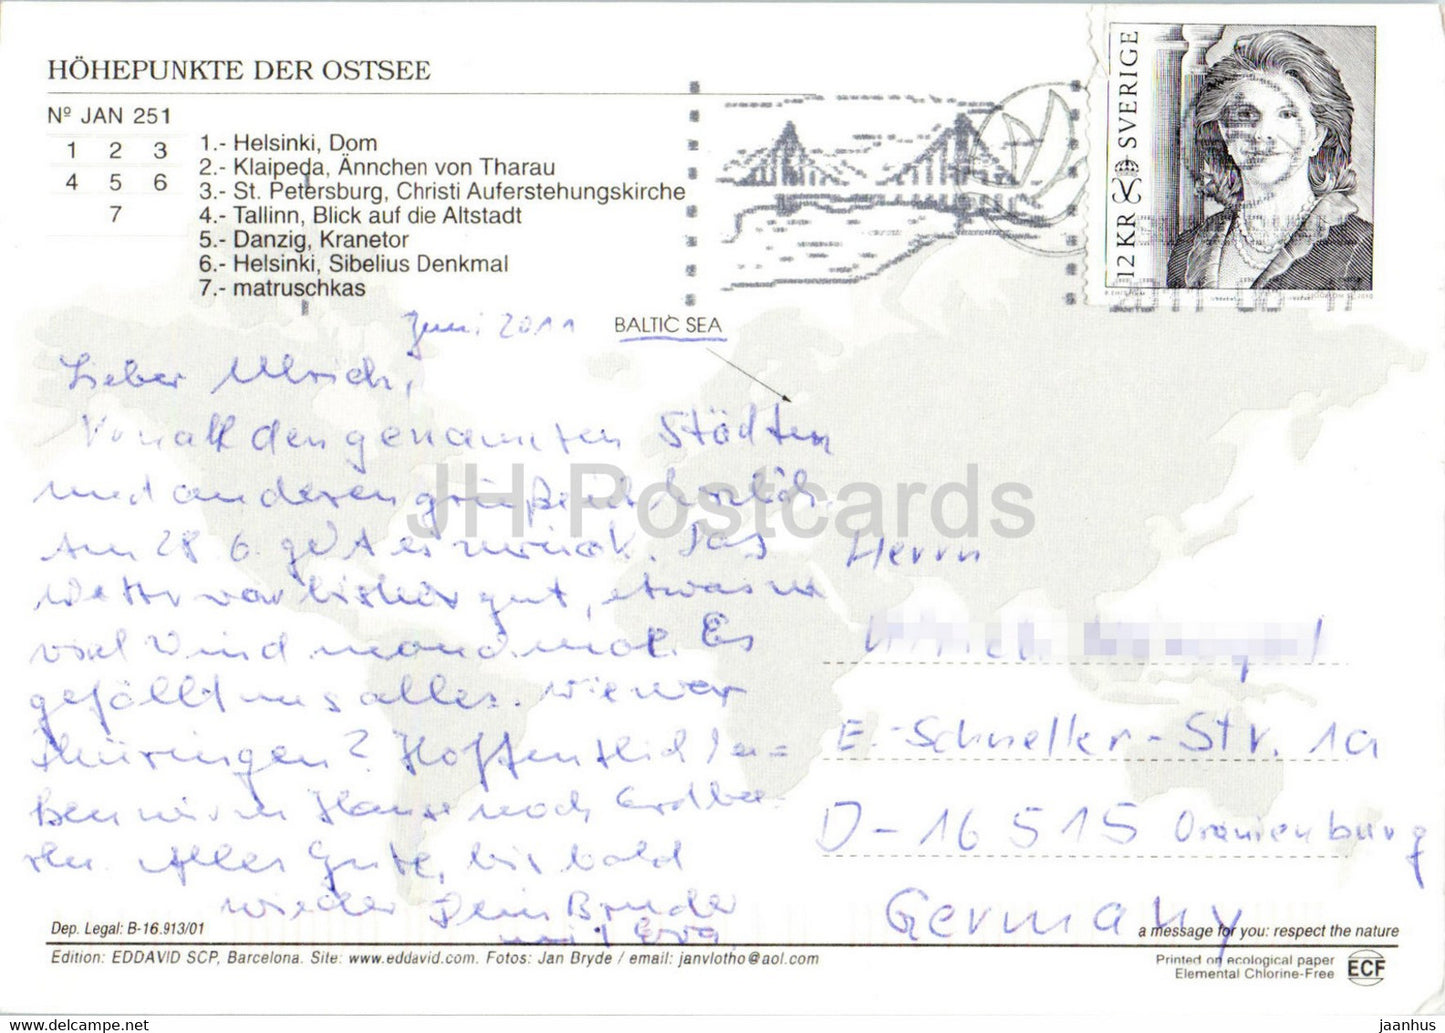 HÖHEPUNKTE DER OSTSEE
Nº JAN 251
1 2 3
4 5 6
7
1.- Helsinki, Dom
2.- Klaipeda, Ännchen von Tharau
3.- St. Petersburg, Christi Auferstehungskirche
4.- Tallinn, Blick auf die Altstadt
5.- Danzig, Kranetor
6.- Helsinki, Sibelius Denkmal
7.- matruschkas
12 KR SVERIGE
Juni 2011
BALTIC SEA
Lieber Ulrich,
Von all den genannten Städten
und anderen grüße ich herzlich.
Am 28.6. geht es zurück. Das
Wetter war bisher gut, etwas
viel Wind manchmal. Es
gefällt uns alles. Wie war
Thüringen? Hoffentlich
wir zu Hause noch Erdbee-
ren. Alles Gute, bis bald
wieder Dein Bruder
mit Eva
JH Postcards
Herrn
Ulrich
E.-Schneller-Str. 1a
D-16515 Oranienburg
Germany
Dep. Legal: B-16.913/01
a message for you: respect the nature
Edition: EDDAVID SCP, Barcelona. Site: www.eddavid.com. Fotos: Jan Bryde / email: janvlotho@aol.com
Printed on ecological paper
Elemental Chlorine-Free
ECF
https://www.jhpostcards.com
jaanhus